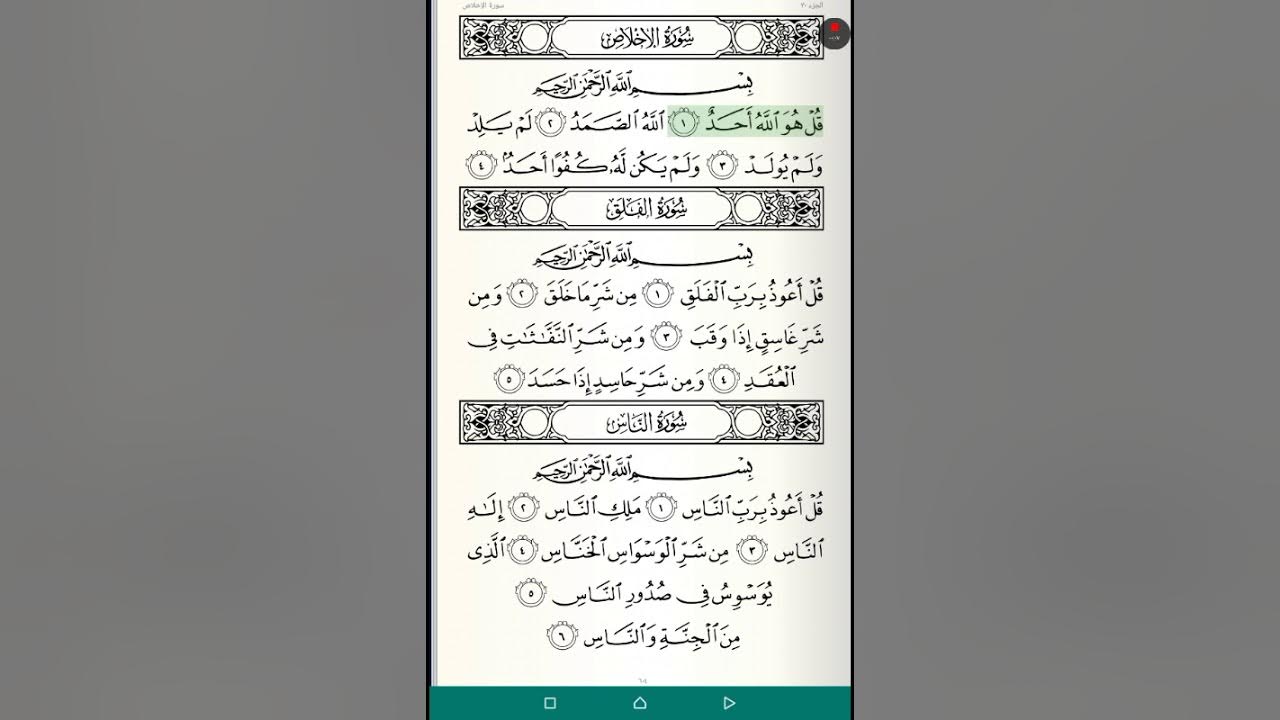 الجزء ٣٠ سورة الإخلاص
سُورَةُ الإِخْلَاصِ
بِسْمِ ٱللَّهِ ٱلرَّحْمَٰنِ ٱلرَّحِيمِ
قُلْ هُوَ ٱللَّهُ أَحَدٌ ١ ٱللَّهُ ٱلصَّمَدُ ٢ لَمْ يَلِدْ
وَلَمْ يُولَدْ ٣ وَلَمْ يَكُن لَّهُۥ كُفُوًا أَحَدٌۢ ٤
سُورَةُ الفَلَقِ
بِسْمِ ٱللَّهِ ٱلرَّحْمَٰنِ ٱلرَّحِيمِ
قُلْ أَعُوذُ بِرَبِّ ٱلْفَلَقِ ١ مِن شَرِّ مَا خَلَقَ ٢ وَمِن
شَرِّ غَاسِقٍ إِذَا وَقَبَ ٣ وَمِن شَرِّ ٱلنَّفَّٰثَٰتِ فِى
ٱلْعُقَدِ ٤ وَمِن شَرِّ حَاسِدٍ إِذَا حَسَدَ ٥
سُورَةُ النَّاسِ
بِسْمِ ٱللَّهِ ٱلرَّحْمَٰنِ ٱلرَّحِيمِ
قُلْ أَعُوذُ بِرَبِّ ٱلنَّاسِ ١ مَلِكِ ٱلنَّاسِ ٢ إِلَٰهِ
ٱلنَّاسِ ٣ مِن شَرِّ ٱلْوَسْوَاسِ ٱلْخَنَّاسِ ٤ ٱلَّذِى
يُوَسْوِسُ فِى صُدُورِ ٱلنَّاسِ ٥
مِنَ ٱلْجِنَّةِ وَٱلنَّاسِ ٦
٦٠٤